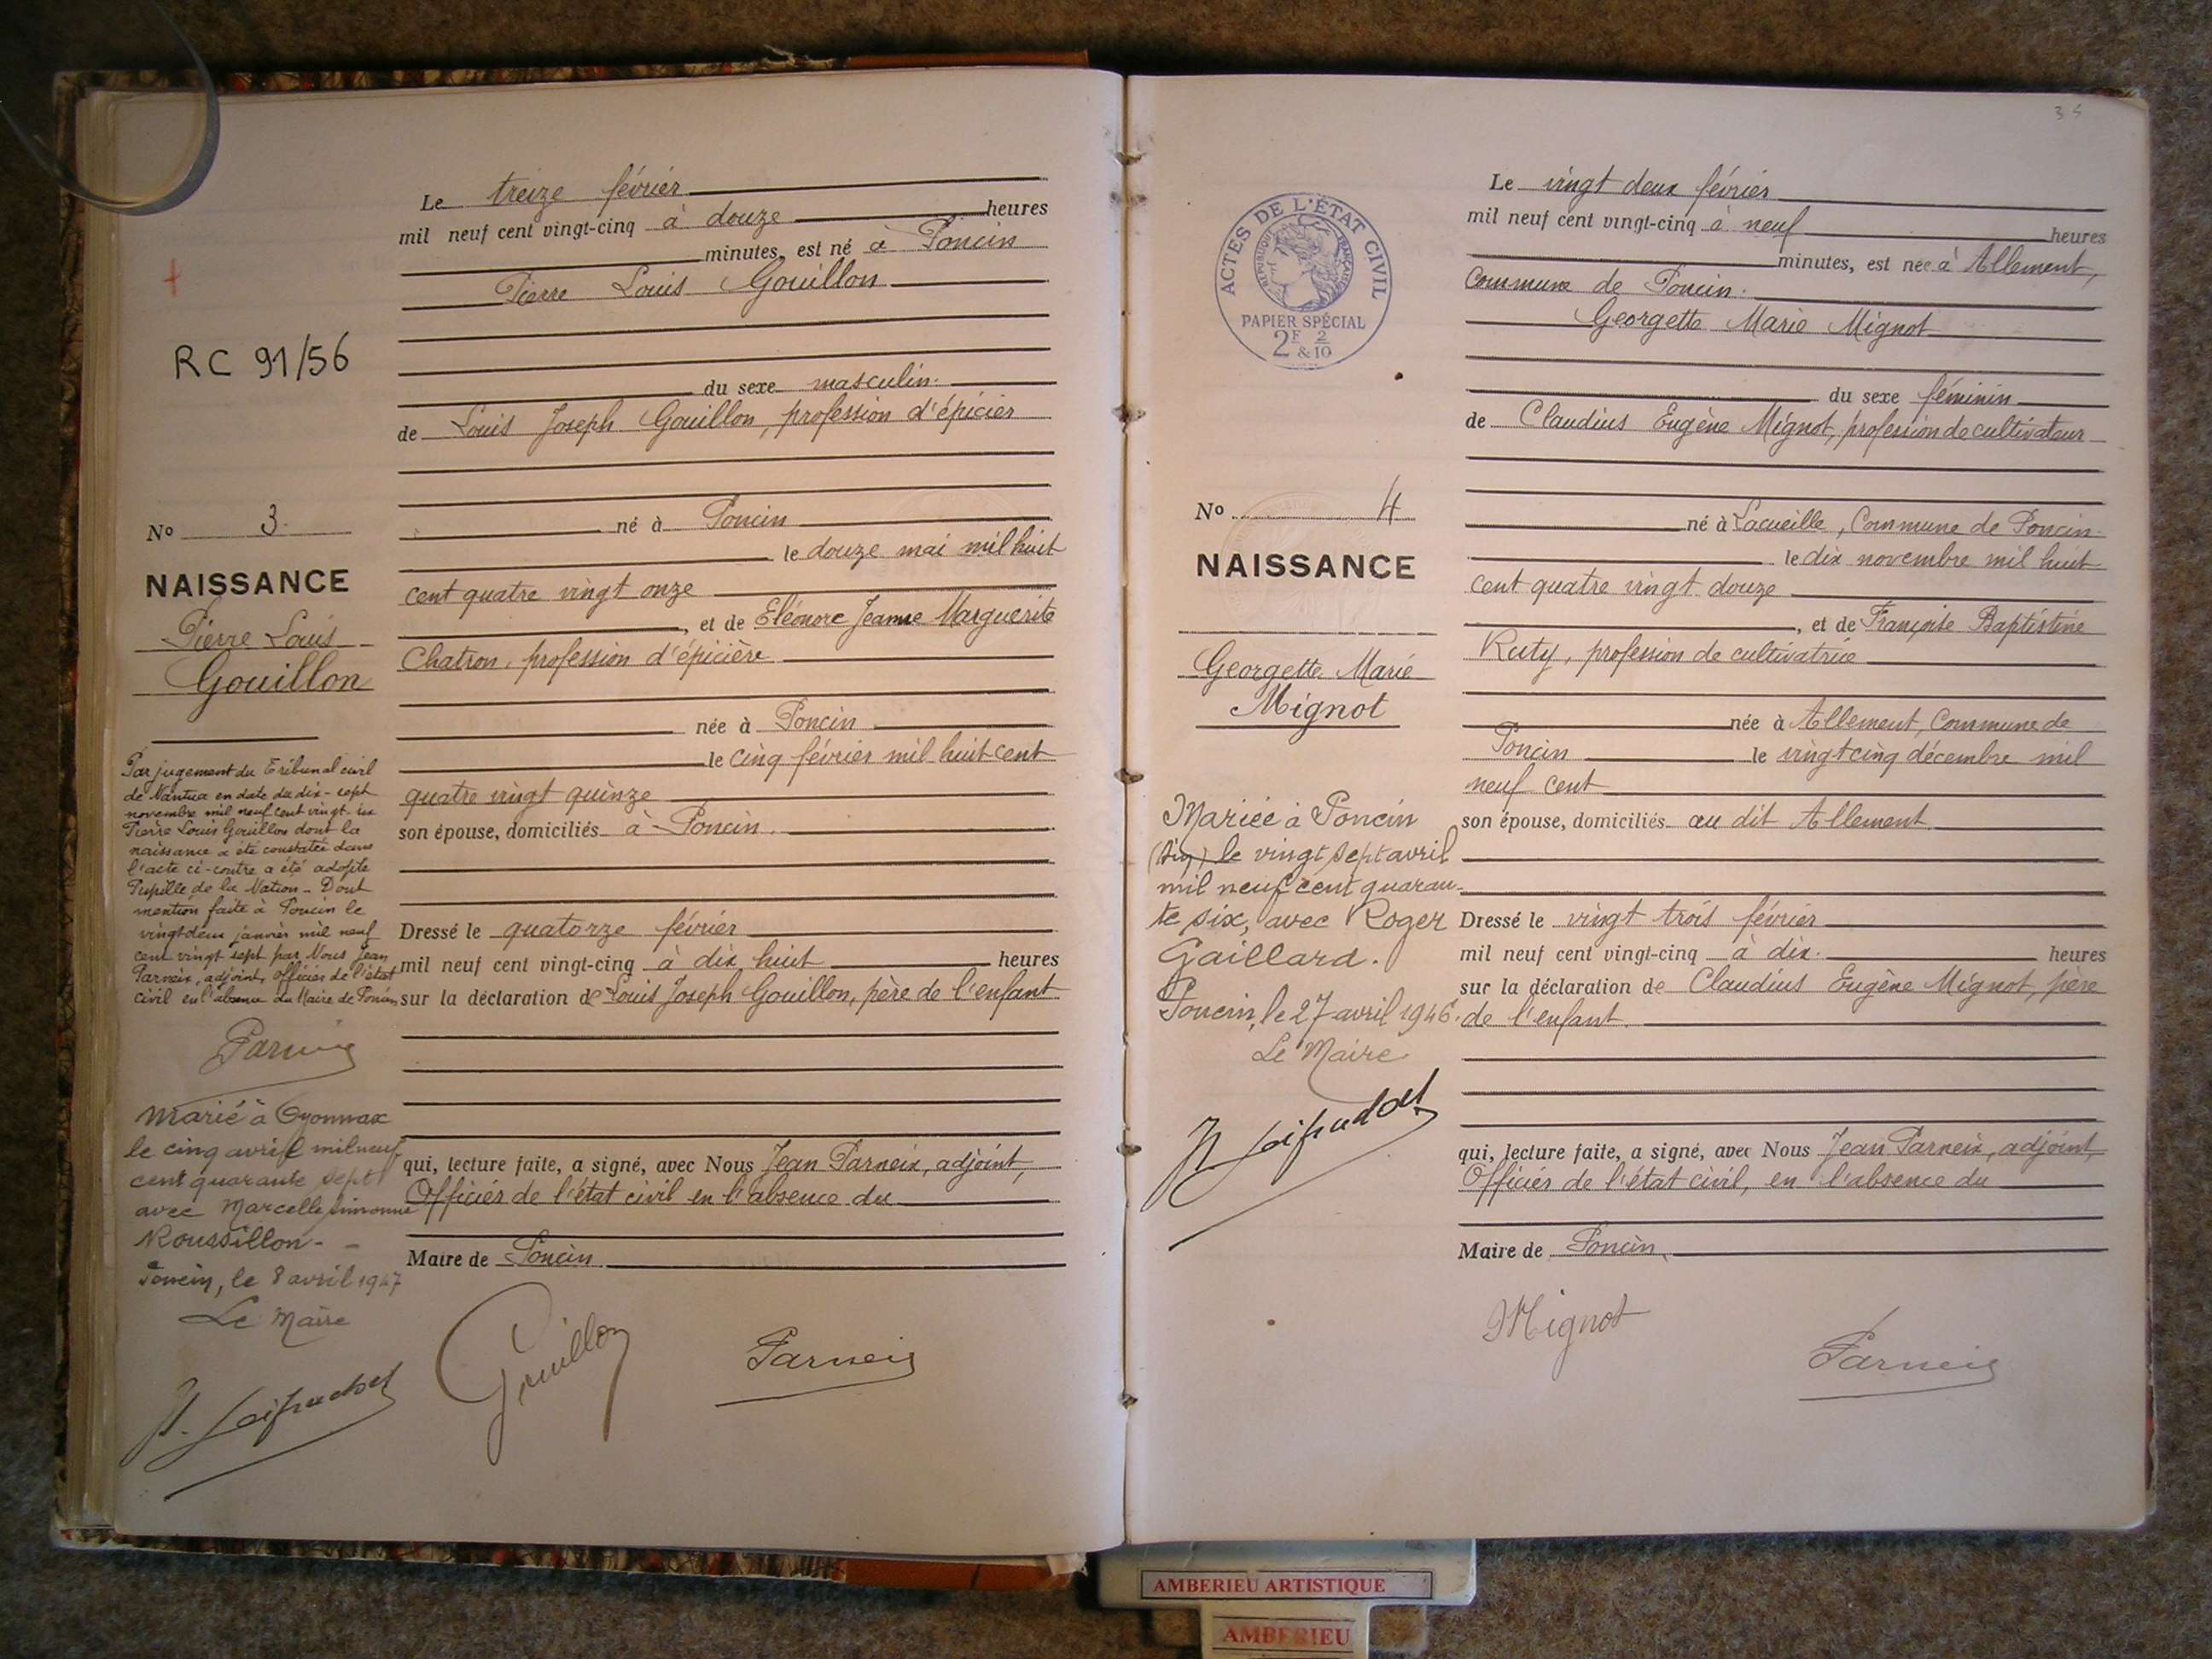 Le treize février
mil neuf cent vingt-cinq à douze heures
minutes, est né à Poncin
Pierre Louis Gouillon
du sexe masculin.
de Louis Joseph Gouillon, profession d'épicier
né à Poncin
le douze mai mil huit
cent quatre vingt onze
, et de Eléonore Jeanne Marguerite
Chatron, profession d'épicière
née à Poncin
le cinq février mil huit cent
quatre vingt quinze
son épouse, domiciliés à Poncin.
Dressé le quatorze février
mil neuf cent vingt-cinq à dix huit heures
sur la déclaration de Louis Joseph Gouillon, père de l'enfant
qui, lecture faite, a signé, avec Nous Jean Parneix, adjoint,
Officier de l'état civil en l'absence du
Maire de Poncin.
Gouillon
Parneix
RC 91/56
No 3.
NAISSANCE
Pierre Louis
Gouillon
Par jugement du Tribunal civil
de Nantua en date du dix-sept
novembre mil neuf cent vingt-six
Pierre Louis Gouillon dont la
naissance a été constatée dans
l'acte ci-contre a été adopté
Pupille de la Nation - Dont
mention faite à Poncin le
vingt deux janvier mil neuf
cent vingt sept par Nous Jean
Parneix, adjoint, officier de l'état
civil en l'absence du Maire de Poncin
Parneix
Marié à Oyonnax
le cinq avril mil neuf
cent quarante sept
avec Marcelle Simonne
Roussillon - -
Poncin, le 8 avril 1947
Le Maire
35
ACTES DE L'ÉTAT CIVIL
RÉPUBLIQUE FRANÇAISE
PAPIER SPÉCIAL
2F 2
&10
Le vingt deux février
mil neuf cent vingt-cinq à neuf heures
minutes, est née à Allement,
commune de Poncin.
Georgette Marie Mignot
du sexe féminin
de Claudius Eugène Mignot, profession de cultivateur
né à Lacueille, Commune de Poncin.
le dix novembre mil huit
cent quatre vingt douze
, et de Françoise Baptistine
Ruty, profession de cultivatrice
née à Allement, Commune de
Poncin le vingt cinq décembre mil
neuf cent
son épouse, domiciliés au dit Allement
Dressé le vingt trois février
mil neuf cent vingt-cinq à dix. heures
sur la déclaration de Claudius Eugène Mignot, père
de l'enfant.
qui, lecture faite, a signé, avec Nous Jean Parneix, adjoint,
Officier de l'état civil, en l'absence du
Maire de Poncin.
Mignot
Parneix
No 4
NAISSANCE
Georgette Marie
Mignot
Mariée à Poncin
le vingt sept avril
mil neuf cent quaran-
te six, avec Roger
Gaillard.
Poncin, le 27 avril 1946.
Le Maire
AMBERIEU ARTISTIQUE
AMBERIEU